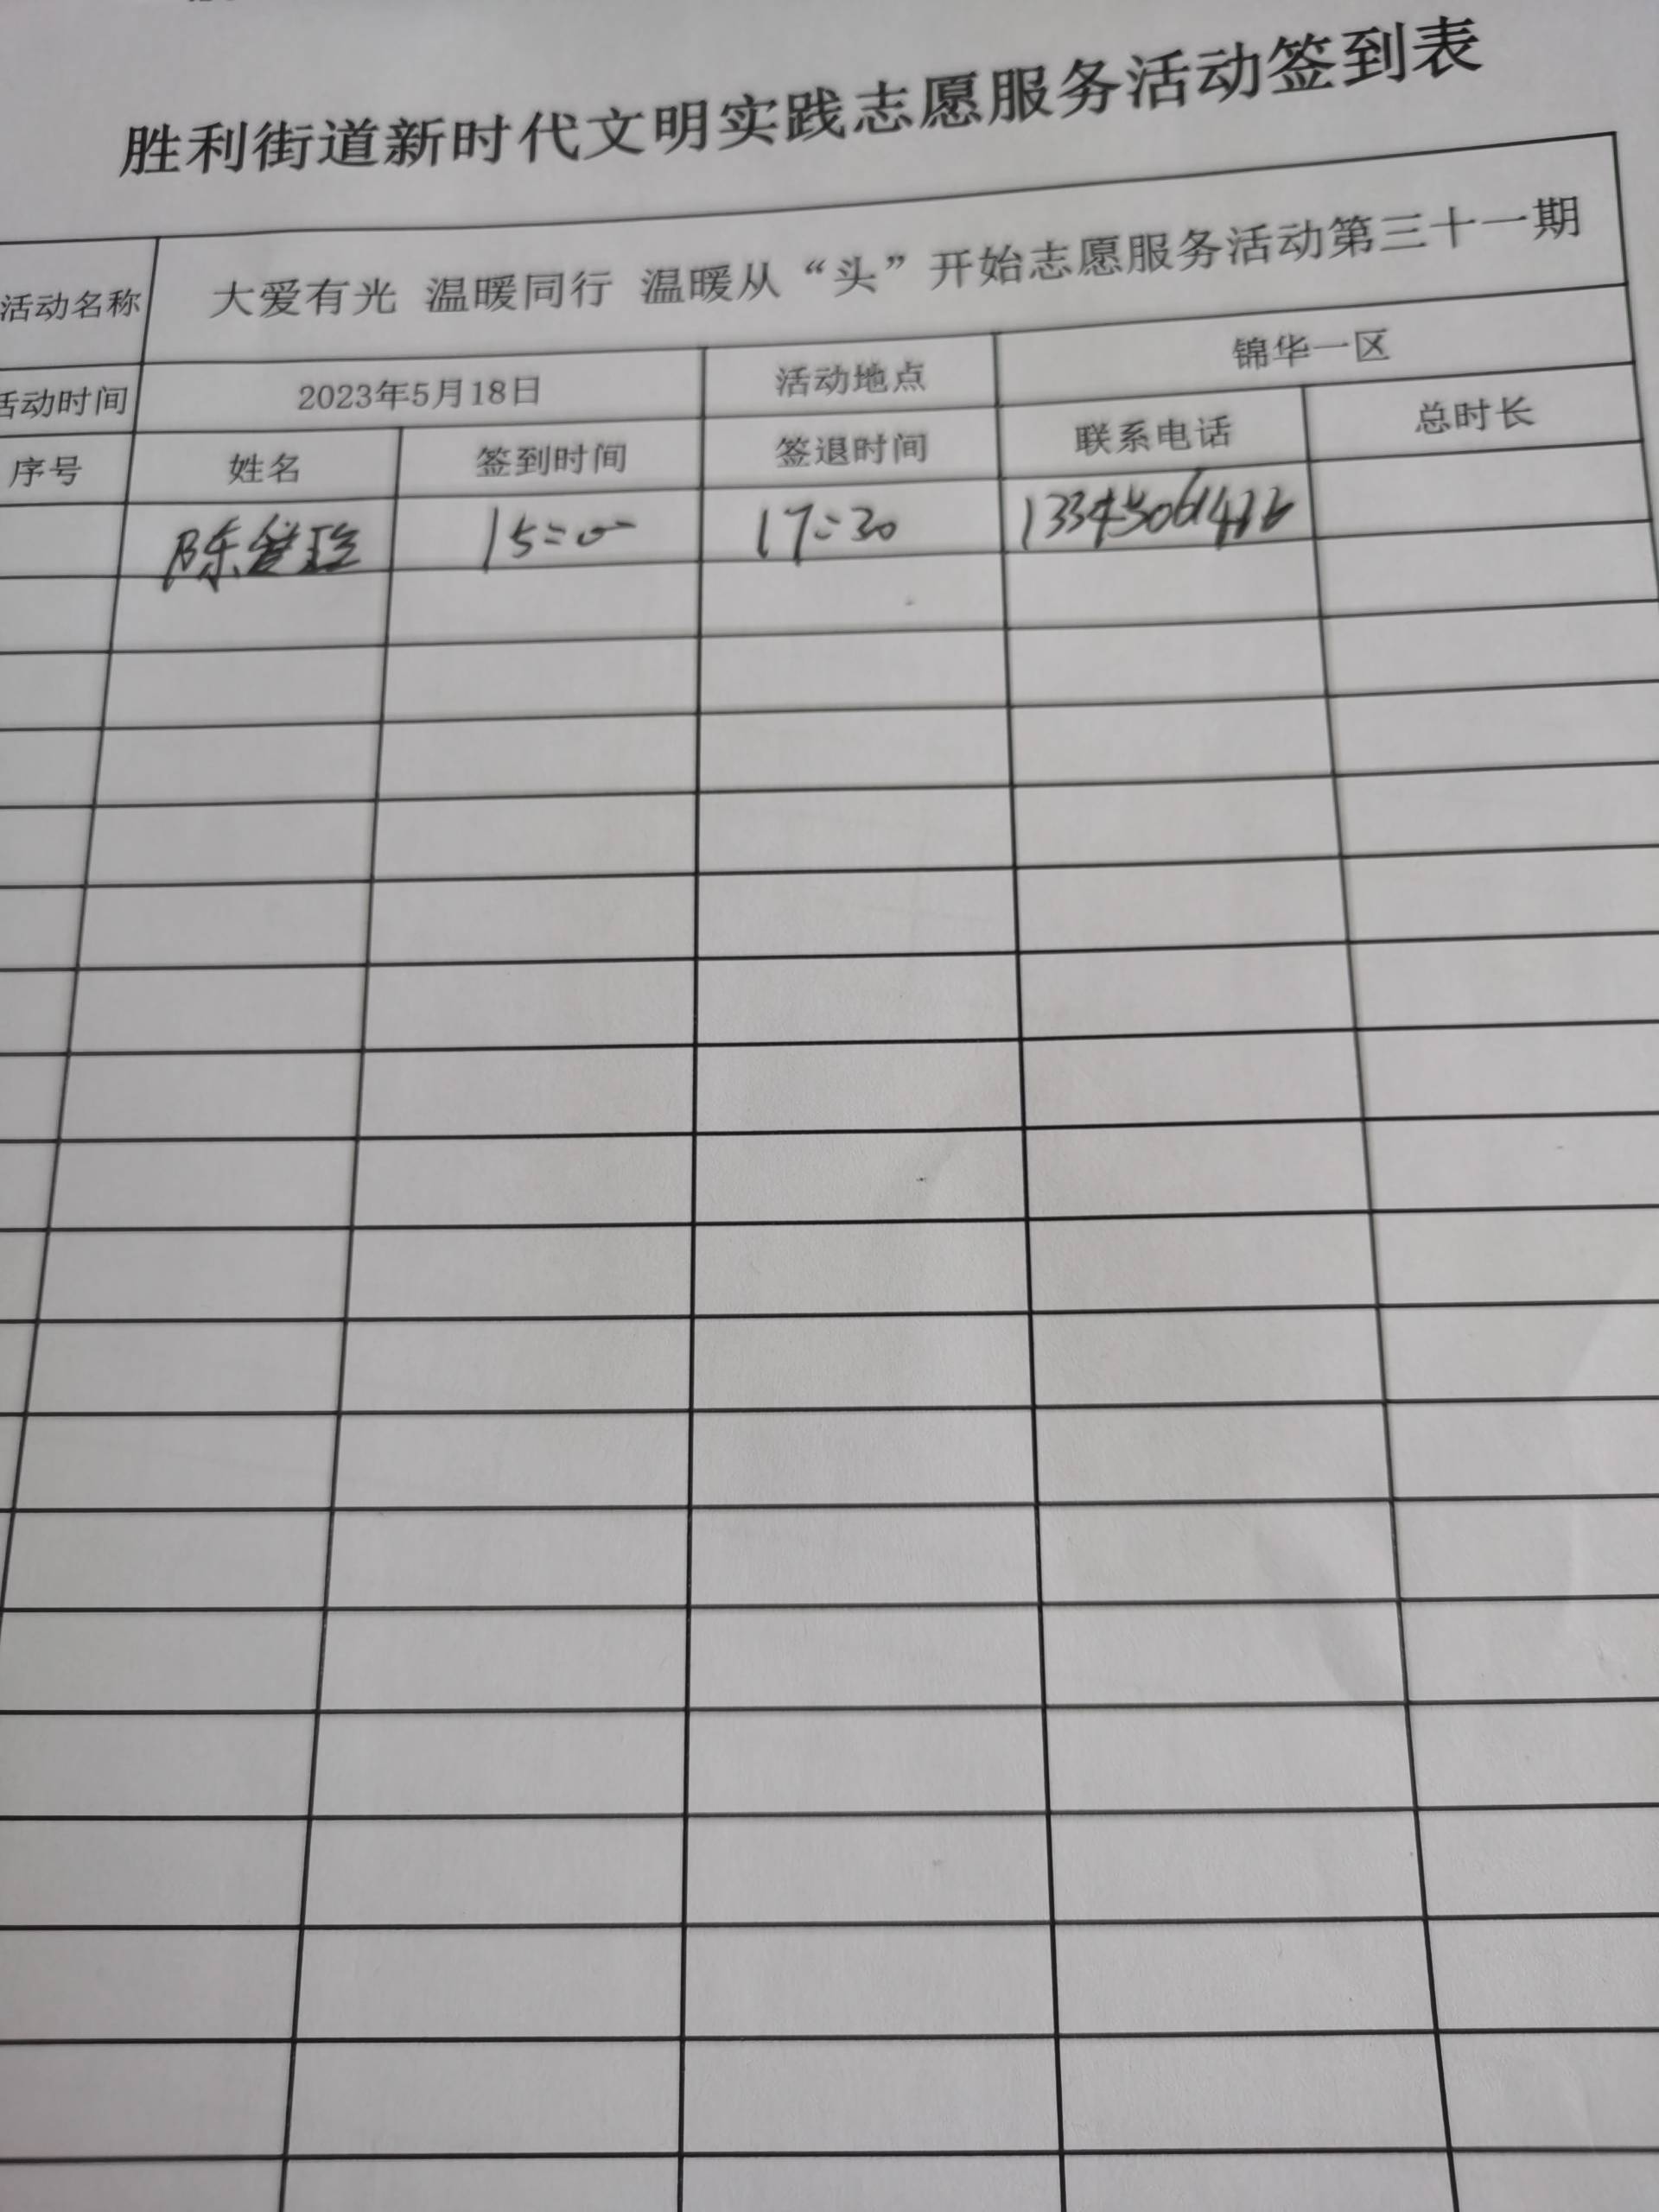 胜利街道新时代文明实践志愿服务活动签到表
活动名称 大爱有光 温暖同行 温暖从“头”开始志愿服务活动第三十一期
活动时间 2023年5月18日 活动地点 锦华一区
序号 姓名 签到时间 签退时间 联系电话 总时长
陈爱玲 15:00 17:30